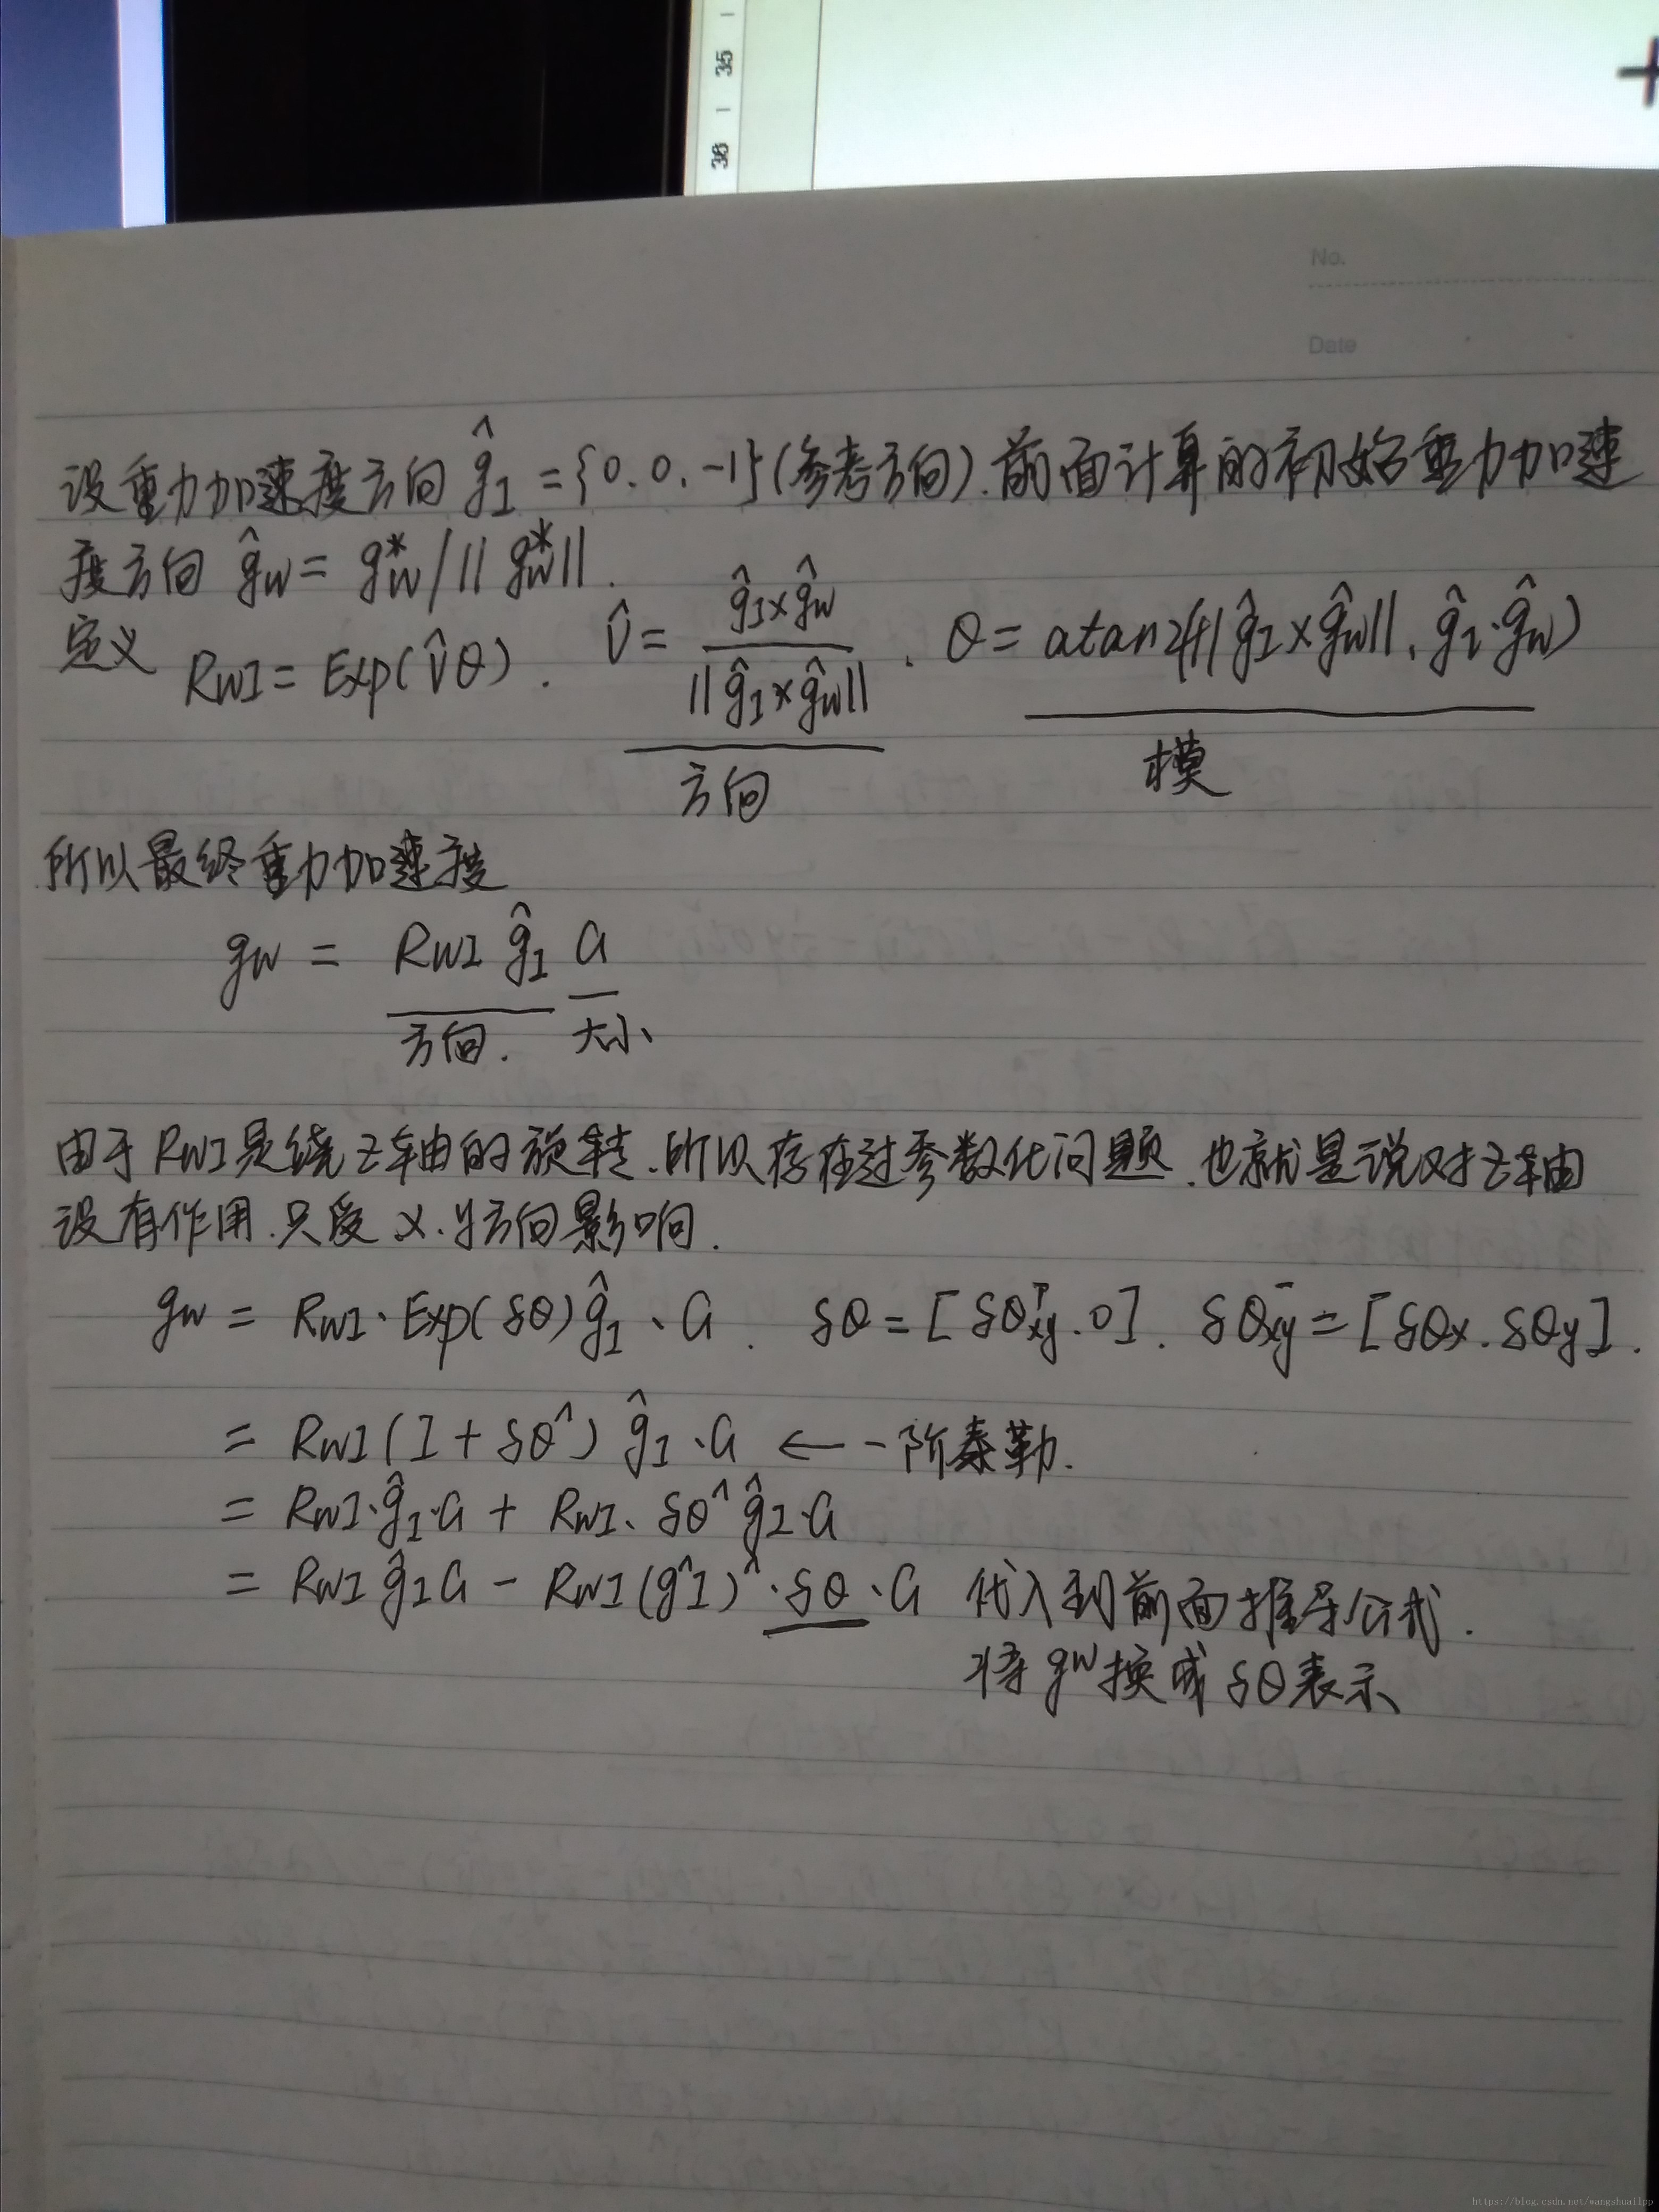 35
36
No.
Date
设重力加速度方向 ĝI = {0, 0, -1} (参考方向). 前面计算的初始重力加速
度方向 ĝw = g*w / || g*w ||.
定义 RWI = Exp(v̂θ). v̂ = ĝI×ĝw / ||ĝI×ĝw||, θ = atan2(||ĝI×ĝw||, ĝI·ĝw)
方向 模
所以最终重力加速度
gw = RWI ĝI G
方向. 大小
由于RWI是绕z轴的旋转,所以存在过参数化问题,也就是说对z轴
没有作用.只受x.y方向影响.
gw = RWI·Exp(δθ)ĝI·G. δθ = [δθᵀxy.0]. δθxy = [δθx.δθy].
= RWI(I+δθ^)ĝI·G ← 一阶泰勒.
= RWI·ĝI·G + RWI·δθ^ĝI·G
= RWI ĝI G - RWI(ĝI)^·δθ·G 代入到前面推导公式.
将gw换成δθ表示
https://blog.csdn.net/wangshuailpp